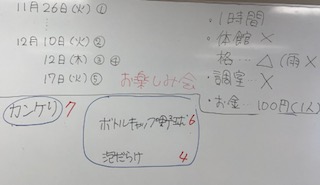 11月26日(火) ①
12月10日(火) ②
12日(木) ③ ④
17日(火) ⑤
お楽しみ会
・1日時間
・体館 X
格… △ (雨X
・調室… X
・お金… 100円(1人)
カンケリ 7
ボトルキャップ野球 6
泥だらけ 4